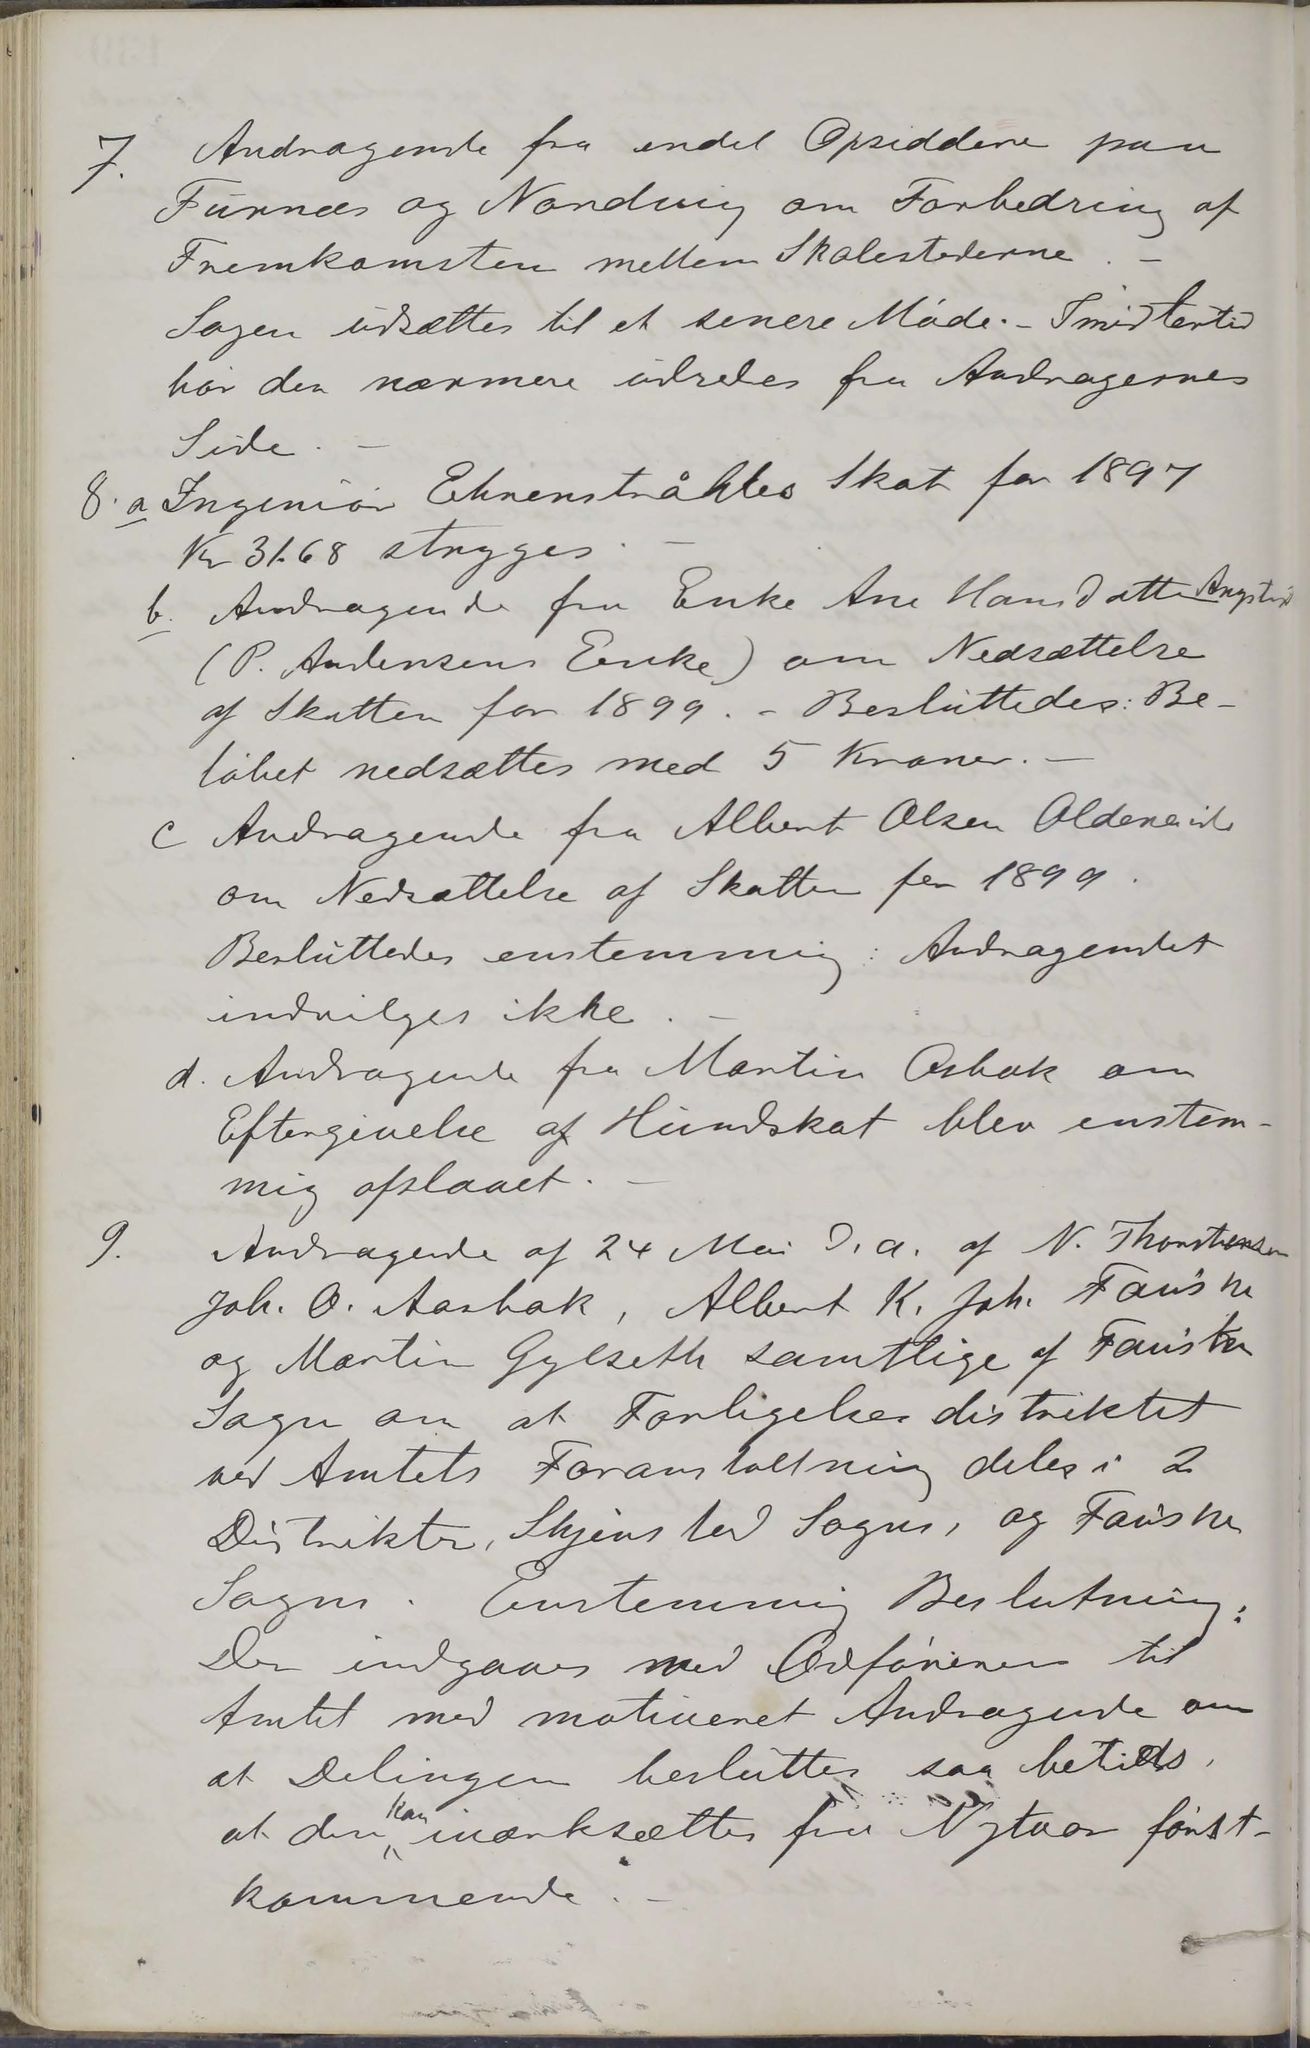 7. Andragende fra endel Opsiddere paa
Furnæs og Nordvig om Forbedring af
Fremkomsten mellem Skolestederne. –
Sagen udsættes til et senere Møde. – Imidlertid
bør den nærmere udredes fra Andragernes
Side. –
8. a Ingeniør Ehrenstråhles Skat for 1897
Kr 31.68 stryges. –
b. Andragende fra Enke Ane Hansdatter
(P. Andersens Enke) om Nedsættelse
af Skatten for 1899. – Besluttedes: Be-
løbet nedsættes med 5 Kroner. –
c Andragende fra Albert Olsen Oldereide
om Nedsættelse af Skatten for 1899.
Besluttedes enstemmig: Andragendet
indvilges ikke. –
d. Andragende fra Martin Osbak om
Eftergivelse af Hundskat blev enstem-
mig afslaaet. –
9. Andragende af 24 Mai d. a. af N. Thorstensen
Joh. O. Aasbak, Albert K. Joh. Fauske
og Martin Gylseth samtlige af Fauske
Sogn om at Forligelsesdistriktet
ved Amtets Foranstaltning deles i 2
Distrikter, Skjerstad Sogns, og Fauske
Sogns. Enstemmig Beslutning:
Der indgaaes med Ordføreren til
Amtet med motiveret Andragende om
at Delingen besluttes saa betids,
at den kan iværksættes fra Nytaar først-
kommende. –